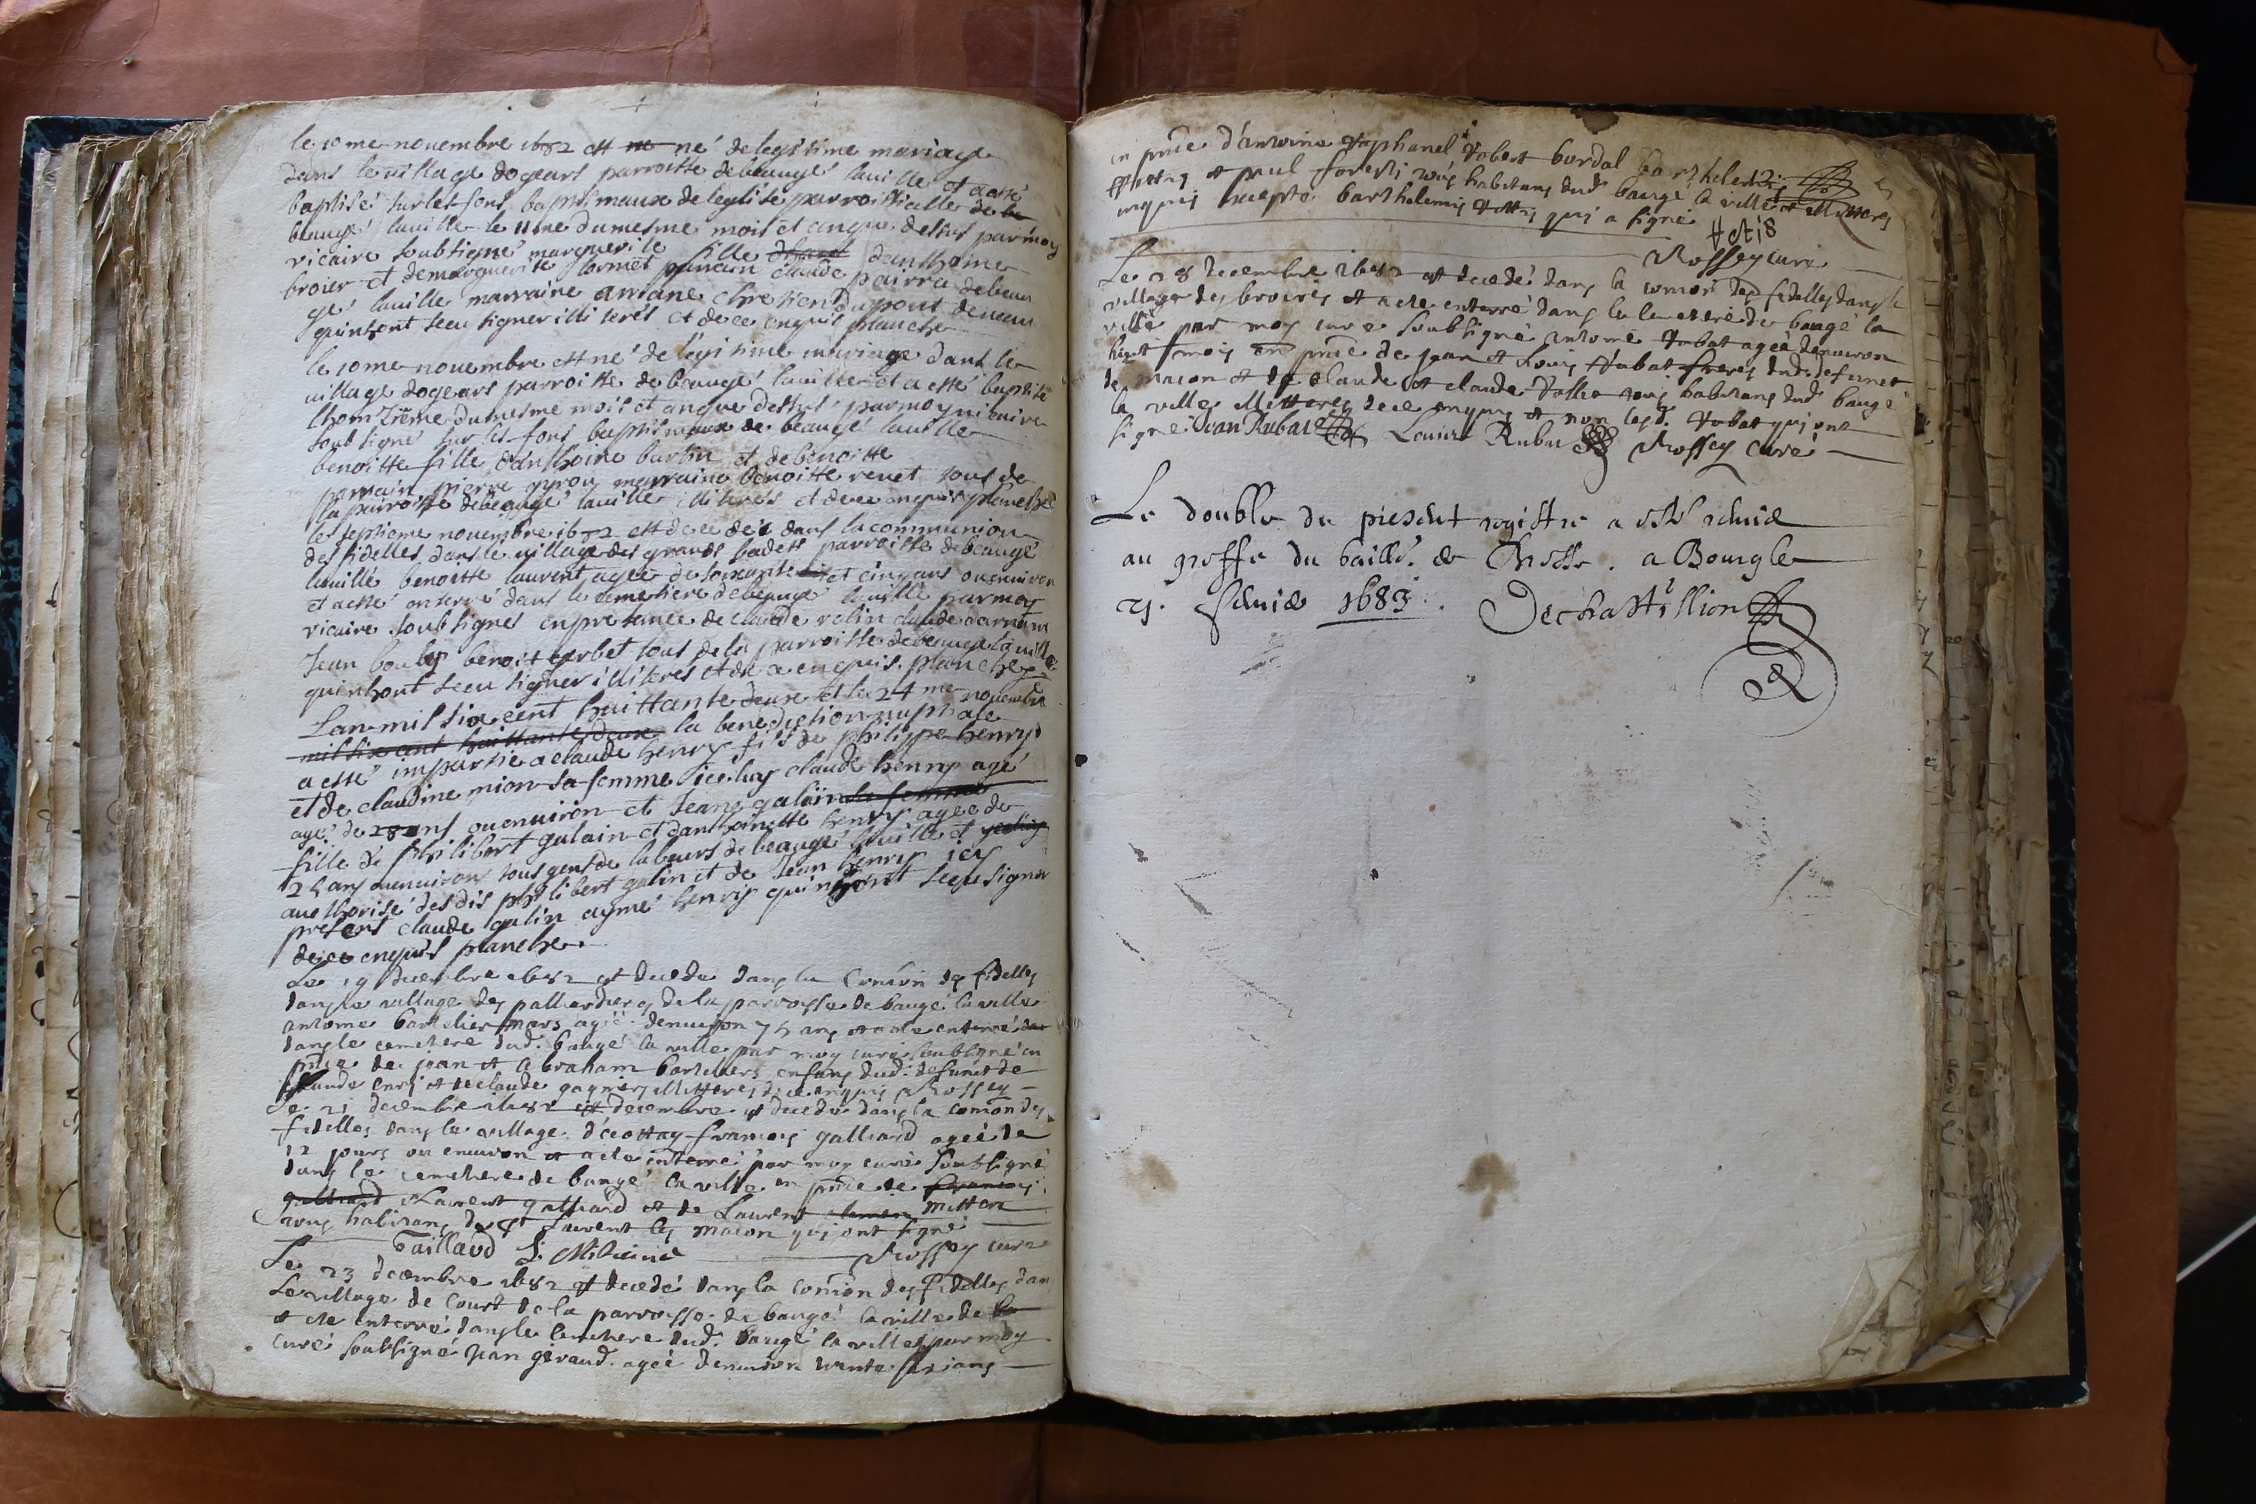 le 10me novembre 1682 est ne né de legitime mariage
dans le village dogears parroisse debeaugé lauille et a esté
baptisé sur les fons baptismaux de leglise parroissialle de la
beaugé lauille le 11me dumesme mois et anque dessus parmoy
vicaire soubsigné marguerite fille danthoine
broier et demarguerite cormet parrain claude pairra debeau
gé lauille marraine arriane chretien dupont deueau
quinhont sceu signer illiterés et dece enquis planche
le 10me novembre est né de legitime mariage dans le
village dogears parroisse de beaugé lauille et a esté baptisé
lhonzième dumesme mois et anque dessus parmoy vicaire
soubsigné sur les fons baptismaux de beaugé lauille
benoitte fille danthoine burtin et debenoitte
parrain pierre gyrou marraine benoitte reuet tous de
la parroisse debeaugé lauille illiterés et dece enquis planche
le septieme nouembre 1682 est decedée dans lacommunion
des fidelles dans le village des grands badets parroisse debeaugé
lauille benoitte laurent agée de soixante et cinqans ouenuiron
et a esté enterré dans le cimetiere debeaugé lauille parmoy
vicaire soubsignes enpresance de claude rolin claude
Jean bouley benoit gerbet tous dela parroisse debeaugé lauille
quinhont sceu signer illiterés et de ce enquis planche
Lan mil six cent huittante deux et le 24me nouembre
mil six cent huittante deux la benediction nuptiale
a esté impartie a claude henry fils de philippe henry
et de claudine mion sa femme iceluy claude henry agé
agé de 28 ans ouenuiron et Jeane galain la femme
fille de philibert galain et danthoinette henry agée de
25 ans ouenuiron tous gens de labeurs de beaugé lauille et
aucthorisé des dis philibert galin et de Jean henry icy
presens claude galin aymé henry quinhont sceu signer
dece enquis planche
Le 19 decembre 1682 est decedé dans la comon des fidelles
dans le village des pallierdieres de la parroisse de baugé la ville
antoine bartelier agée denuiron 75 ans et a ete enterré
dans le cemetiere dud. baugé la ville par moy curé soubsigné en
pnce de jean et abraham barteliers enfans dud. defunct de
claude enri et de claude gagnier illitterez de ce enquis Rossey
Le 21 decembre 1682 est decembre est decedé dans la comon des
fidelles dans le village decottay francois galliard agée de
12 jours ou enuiron et a ete enterré par moy curé soubsigné
dans le cemetiere de baugé la ville en pnce de francois
galliard Laurent galliard et de Laurent
tous habitans de St Laurent les macon qui ont signé
Gaillard Rossey curé
Le 23 decembre 1682 est decedé dans la comion des fidelles dans
Le village de Court de la parroisse de baugé la ville de la
et ete enterré dans le cemetiere dud. baugé la ville par moy
curé soubsigné Jean giraud agée denuiron trente six ans
en pnce d'antoine Robert burdal Barthelemy
et paul foresti tous habitans dud. baugé la ville et illitteres
enquis excepté barthelemy qui a signé
Rossey curé
Le 28 decembre 1682 est decedé dans la comion des fidelles dans le
village des broiries et a ete enterré dans le cemetiere de baugé la
ville par moy curé soubsigné antoine Rubat agée denuiron
huit mois en pnce de jean et Louis Rubat freres dud. defunct
de macon et de claude et claude tous habitans dud. baugé
la ville illitteres de ce enquis et non lesd. Rubat qui ont
signé Jean Rubat Louis Rubat Rossey curé
Le double du present registre a esté remis
au greffe du bailla. de Bresse a Bourg le
21. 1683. Dechattillion